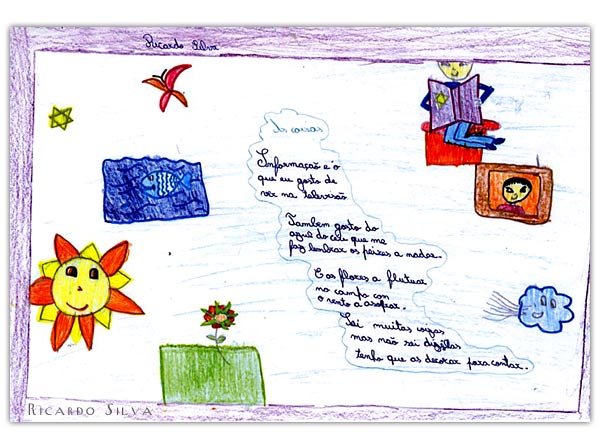 Ricardo Silva
As coisas
Informação é o
que eu gosto de
ver na televisão
Tambem gosto do
azul do céu que me
faz lembrar os peixes a nadar.
E as flores a flutuar
no campo con
o vento a asoprar.
Sei muitas coizas
mas não sei dizélas
tenho que as decorar para contar.
RICARDO SILVA